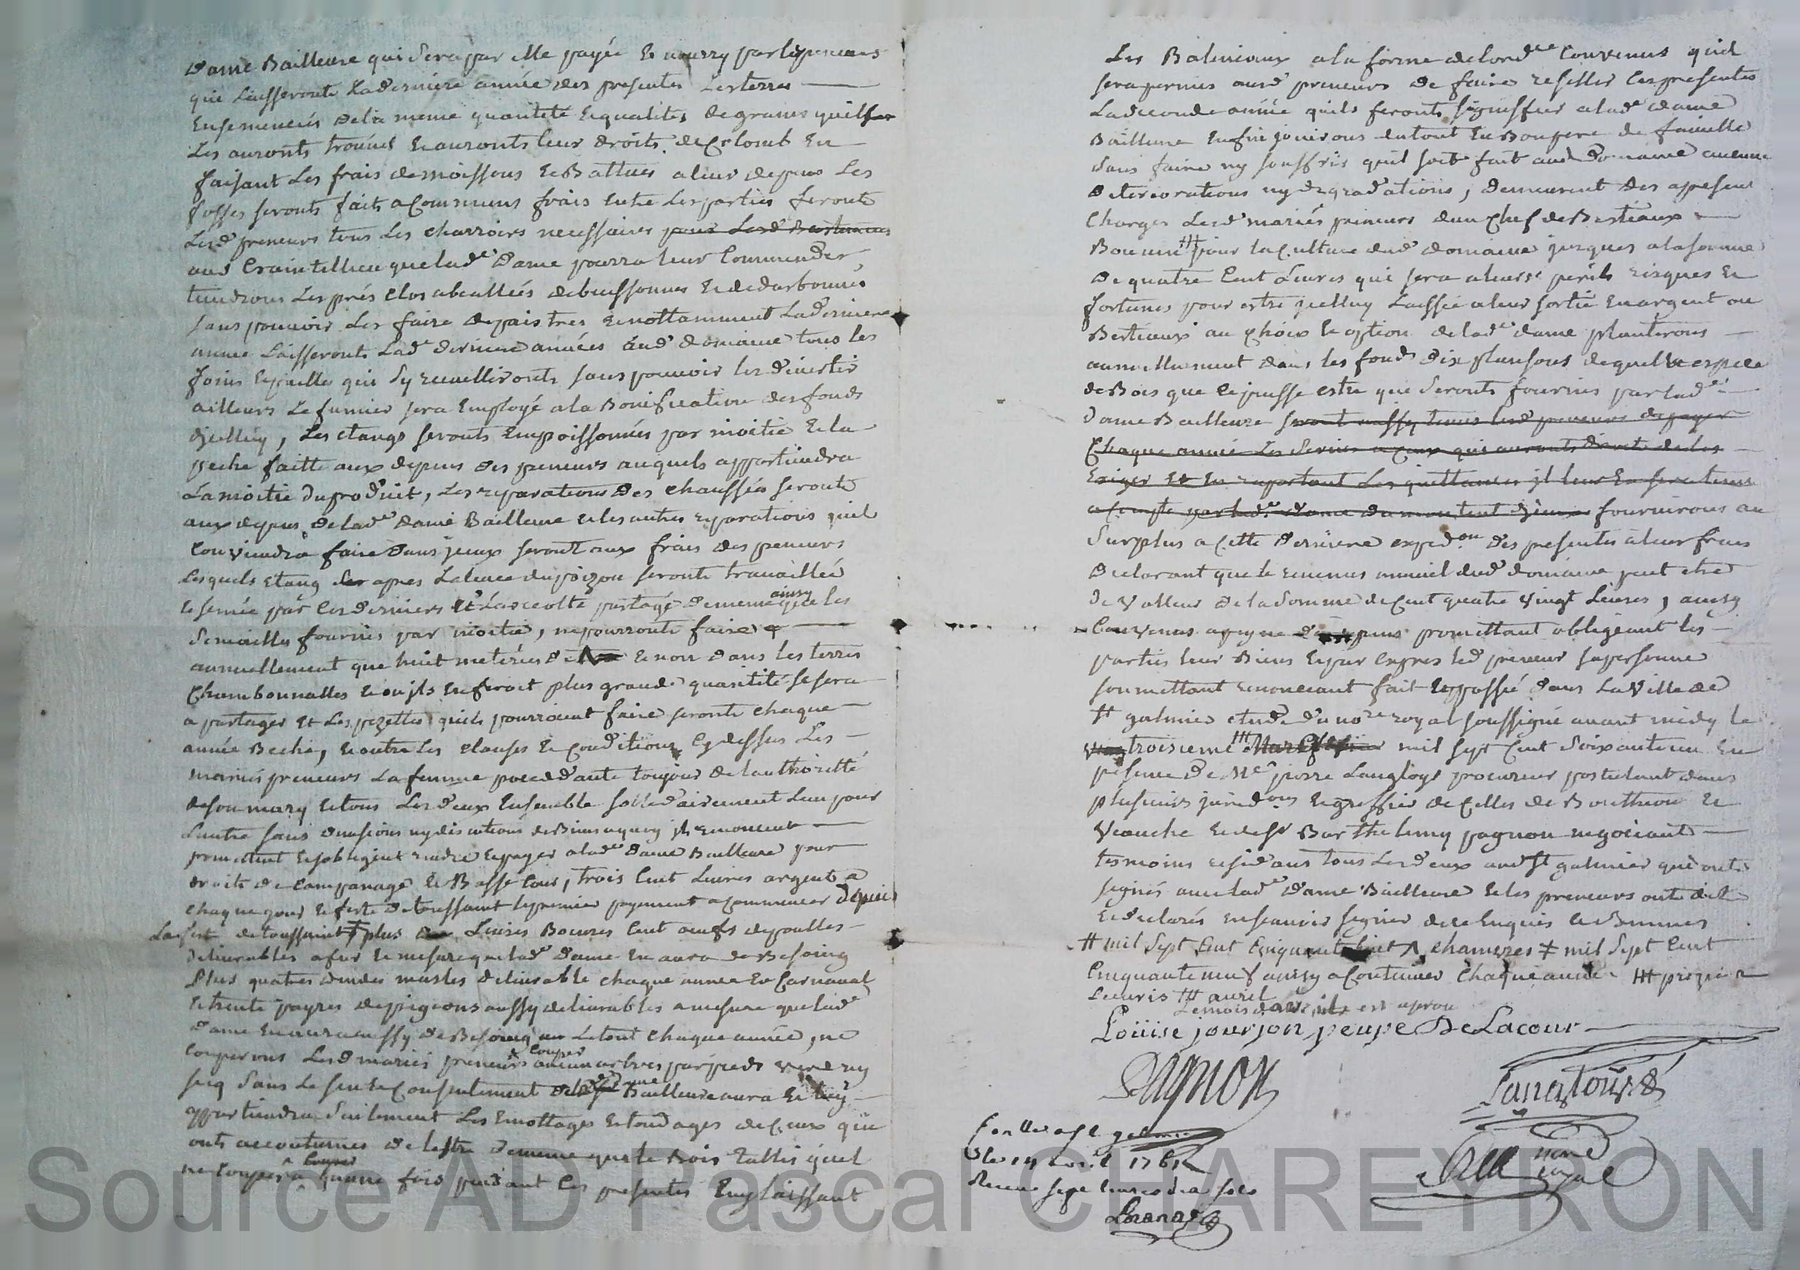 Dame Bailleure qui sera par elle payée & nourry par les preneurs
qui laisseronts la derniére année des presentes les terres
Ensemencés de la meme quantité & qualités de grains quils
les auronts trouvés & auronts leur droits de Colomb En
faisant les frais de moissons & Battues a leur depens Les
fosses seronts faits a Communs frais entre les parties feronts
Lesd preneurs tous les charroirs necessaires pour Lesd Bastiments
aud que lade Dame pourra leur Commander
tiendrons Les prés clos de buissonnes & de darbonnes
sans pouvoir les faire depaistres & nottamment La derniere
année Laisseronts lade derniere années aud domaine tous les
foins & pailles qui sy recuellironts sans pouvoir les divertir
ailleurs Le fumier sera Employé a la Bonification des fonds
dicelluy, Les etangs seronts Empoissonnés par moitié & la
peche faitte aux depens des preneurs auquels appartiendra
La moitié du produit, Les reparations des chaussées seronts
aux depens de lade dame Bailleure & les autres reparations quil
Conviendra faire dans jceux seront aux frais des preneurs
lesquels etang apres La levée du poizon seronts travaillés
& semée par ces derniers & La recolte partagé de meme que les
aussy
semailles fournies par moitié, ne pourronts faire
annuellement que huit meterées de & noir dans les terres
Chambonnalles & ou jls En feroit plus grande quantité se sera
a partager Et Les pezettes quils pourroient faire seronts chaque
année Beché, & outre les clauses & Conditions Cydessus Les
mariés preneurs La femme procedante toujour de lauthorité
de son mary & tous Les deux Ensemble sollidairement Lun pour
Lautre sans divisions ny discutions de Biens a quoy jls renoncent
promettent & sobligent rendre & payer a lade Dame Bailleure pour
droits de Companage & Basse Cour, trois Cent Livres argent a
chaque jour & feste de toussaint le premier payement a Commencer depuis
La feste de toussaint ‡ plus Livres Beures Cent oeufs de poulles
delivrables a fur & mesure que lade Dame En aura de Besoing
Plus quatres dindes masles delivrable chaque année En Carnaval
& trente payres de pigeons aussy delivrables a mesure que lade
Dame En aura aussy de Besoing Le tout chaque année, ne
Couperons Lesd mariés preneurs aucun arbres par pieds vert ny
couper
secq sans Le seu & Consentement de lade Dame Bailleure aura & luy
appartiendra seulement Les Emottages & tondages de Ceux qui
onts accoutumés de lestre de meme que le Bois taillis quel
ne Coupera quune fois pendant les presentes En y laissant
Les Baliveaux a la forme de lorde Convenus quil
sera permis aud preneurs de faire resillier les presentes
La seconde année quils feronts signiffier a lade dame
Bailleure Enfin jouirons du tout En Bon pere de famille
sans faire ny souffrir quil soit fait aud Domaine aucune
deteriorations ny degradations, demeurent des apresent
Chargés Lesd mariés preneurs dun Chef de Bestiaux
Bouvin pour la Culture dud domaine jusques a la somme
De quatre Cent Livres qui sera a leurs perils risques &
fortunes pour estre jcelluy Laissé a leur sortie En argent ou
Bestiaux au choix & option de lade dame planterons
annuellement dans les fonds dix plansons de quelle espece
de Bois que ce puisse estre qui seronts fournies par lade
dame Bailleure seront aussy tenus lesd preneurs de payer
Chaque année Les Servis a Ceux qui auronts droits de les
Exiger Et En raportant Les quittances jl leur En sera tenu
a Compte par lade Dame du montant djceux fournirons au
Surplus a Cette derniere expedon des presentes a leur frais
Declarant que le revenus annuel dud domaine peut etre
de Valleur de la somme de Cent quatre vingt Livres, ainsy
Convenus a peyne promettant obligeant les
parties leur Biens & par expres led preneur sa personne
soumettant renonceant fait & passé dans La Ville de
St galmier etude du nore royal soussigné avant midy le
troisieme mil sept Cent soixante un En
presence de Me pierre Langloys procureur postulant dans
plusieurs juridons & greffier de Celles de Bouthion &
Veauche & de sr Barthelemy pagnon negociant
temoins residans tous Les deux aud St galmier qui onts
signés avec lade Dame Bailleure & les preneurs onts dit
& declarés ne scavoir signer de ce Enquis & Sommés
# mil sept Cent Cinquante huit chambres ‡ mil sept Cent
Cinquante neuf ainsy a Continuer chaque année ‡‡‡ propre
avril
Le mois est aprou
Loüise jourjon veuve De Lacour
Pagnon
Langloys
nore
royal
Con lle a St galmier
le 14 avril 1761
Receu sept livres dix sols